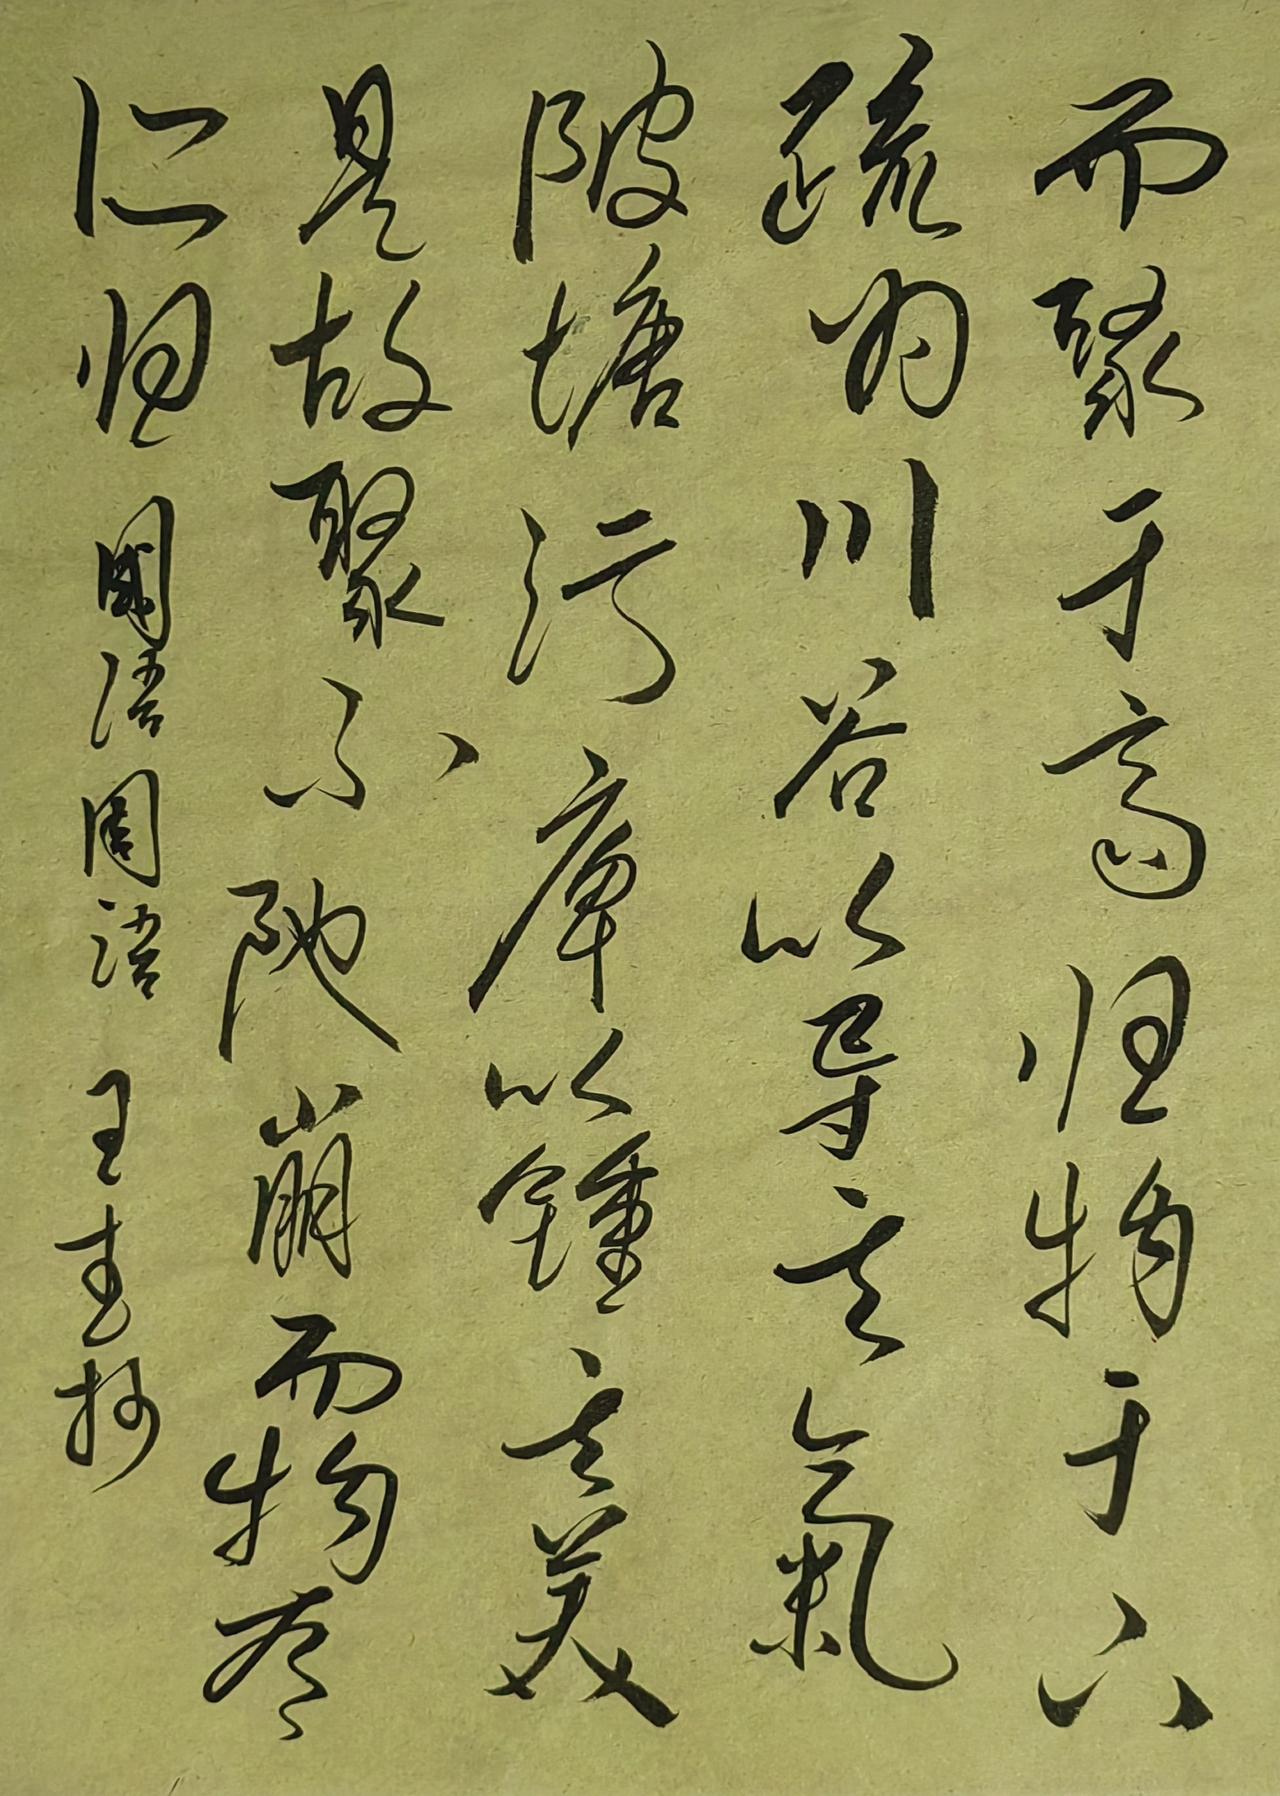 而聚于高归物于下
疏为川谷以导其氣
陂塘污庳以鍾其美
是故聚不阤崩而物有
所归 國语周语 王抄